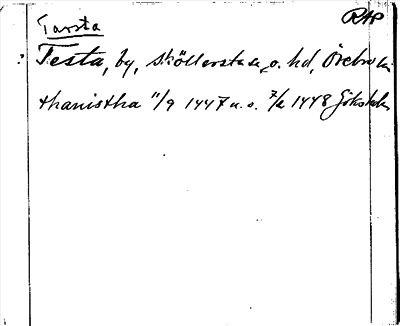 Tarsta
RAP
? Testa, by, Sköllersta sn o. hd, Örebro län
thanistha 11/9 1447 u. s. 7/2 1448